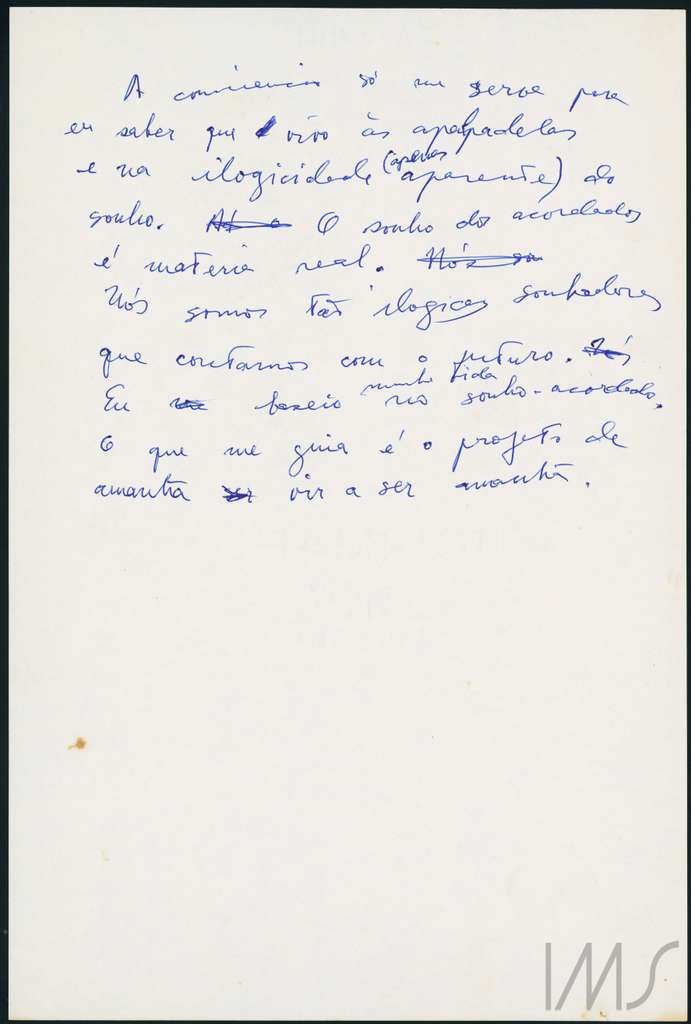 A consciencia só me serve para
eu saber que vivo às apalpadelas
e na ilogicidade (apenas aparente) do
sonho. O sonho dos acordados
é materia real. Nós so
Nós somos tão ilogicos sonhadores
que contamos com o futuro. Nós
Eu baseio minha vida no sonho-acordado.
O que me guia é o projeto de
amanhã vir a ser amanhã.
IMS